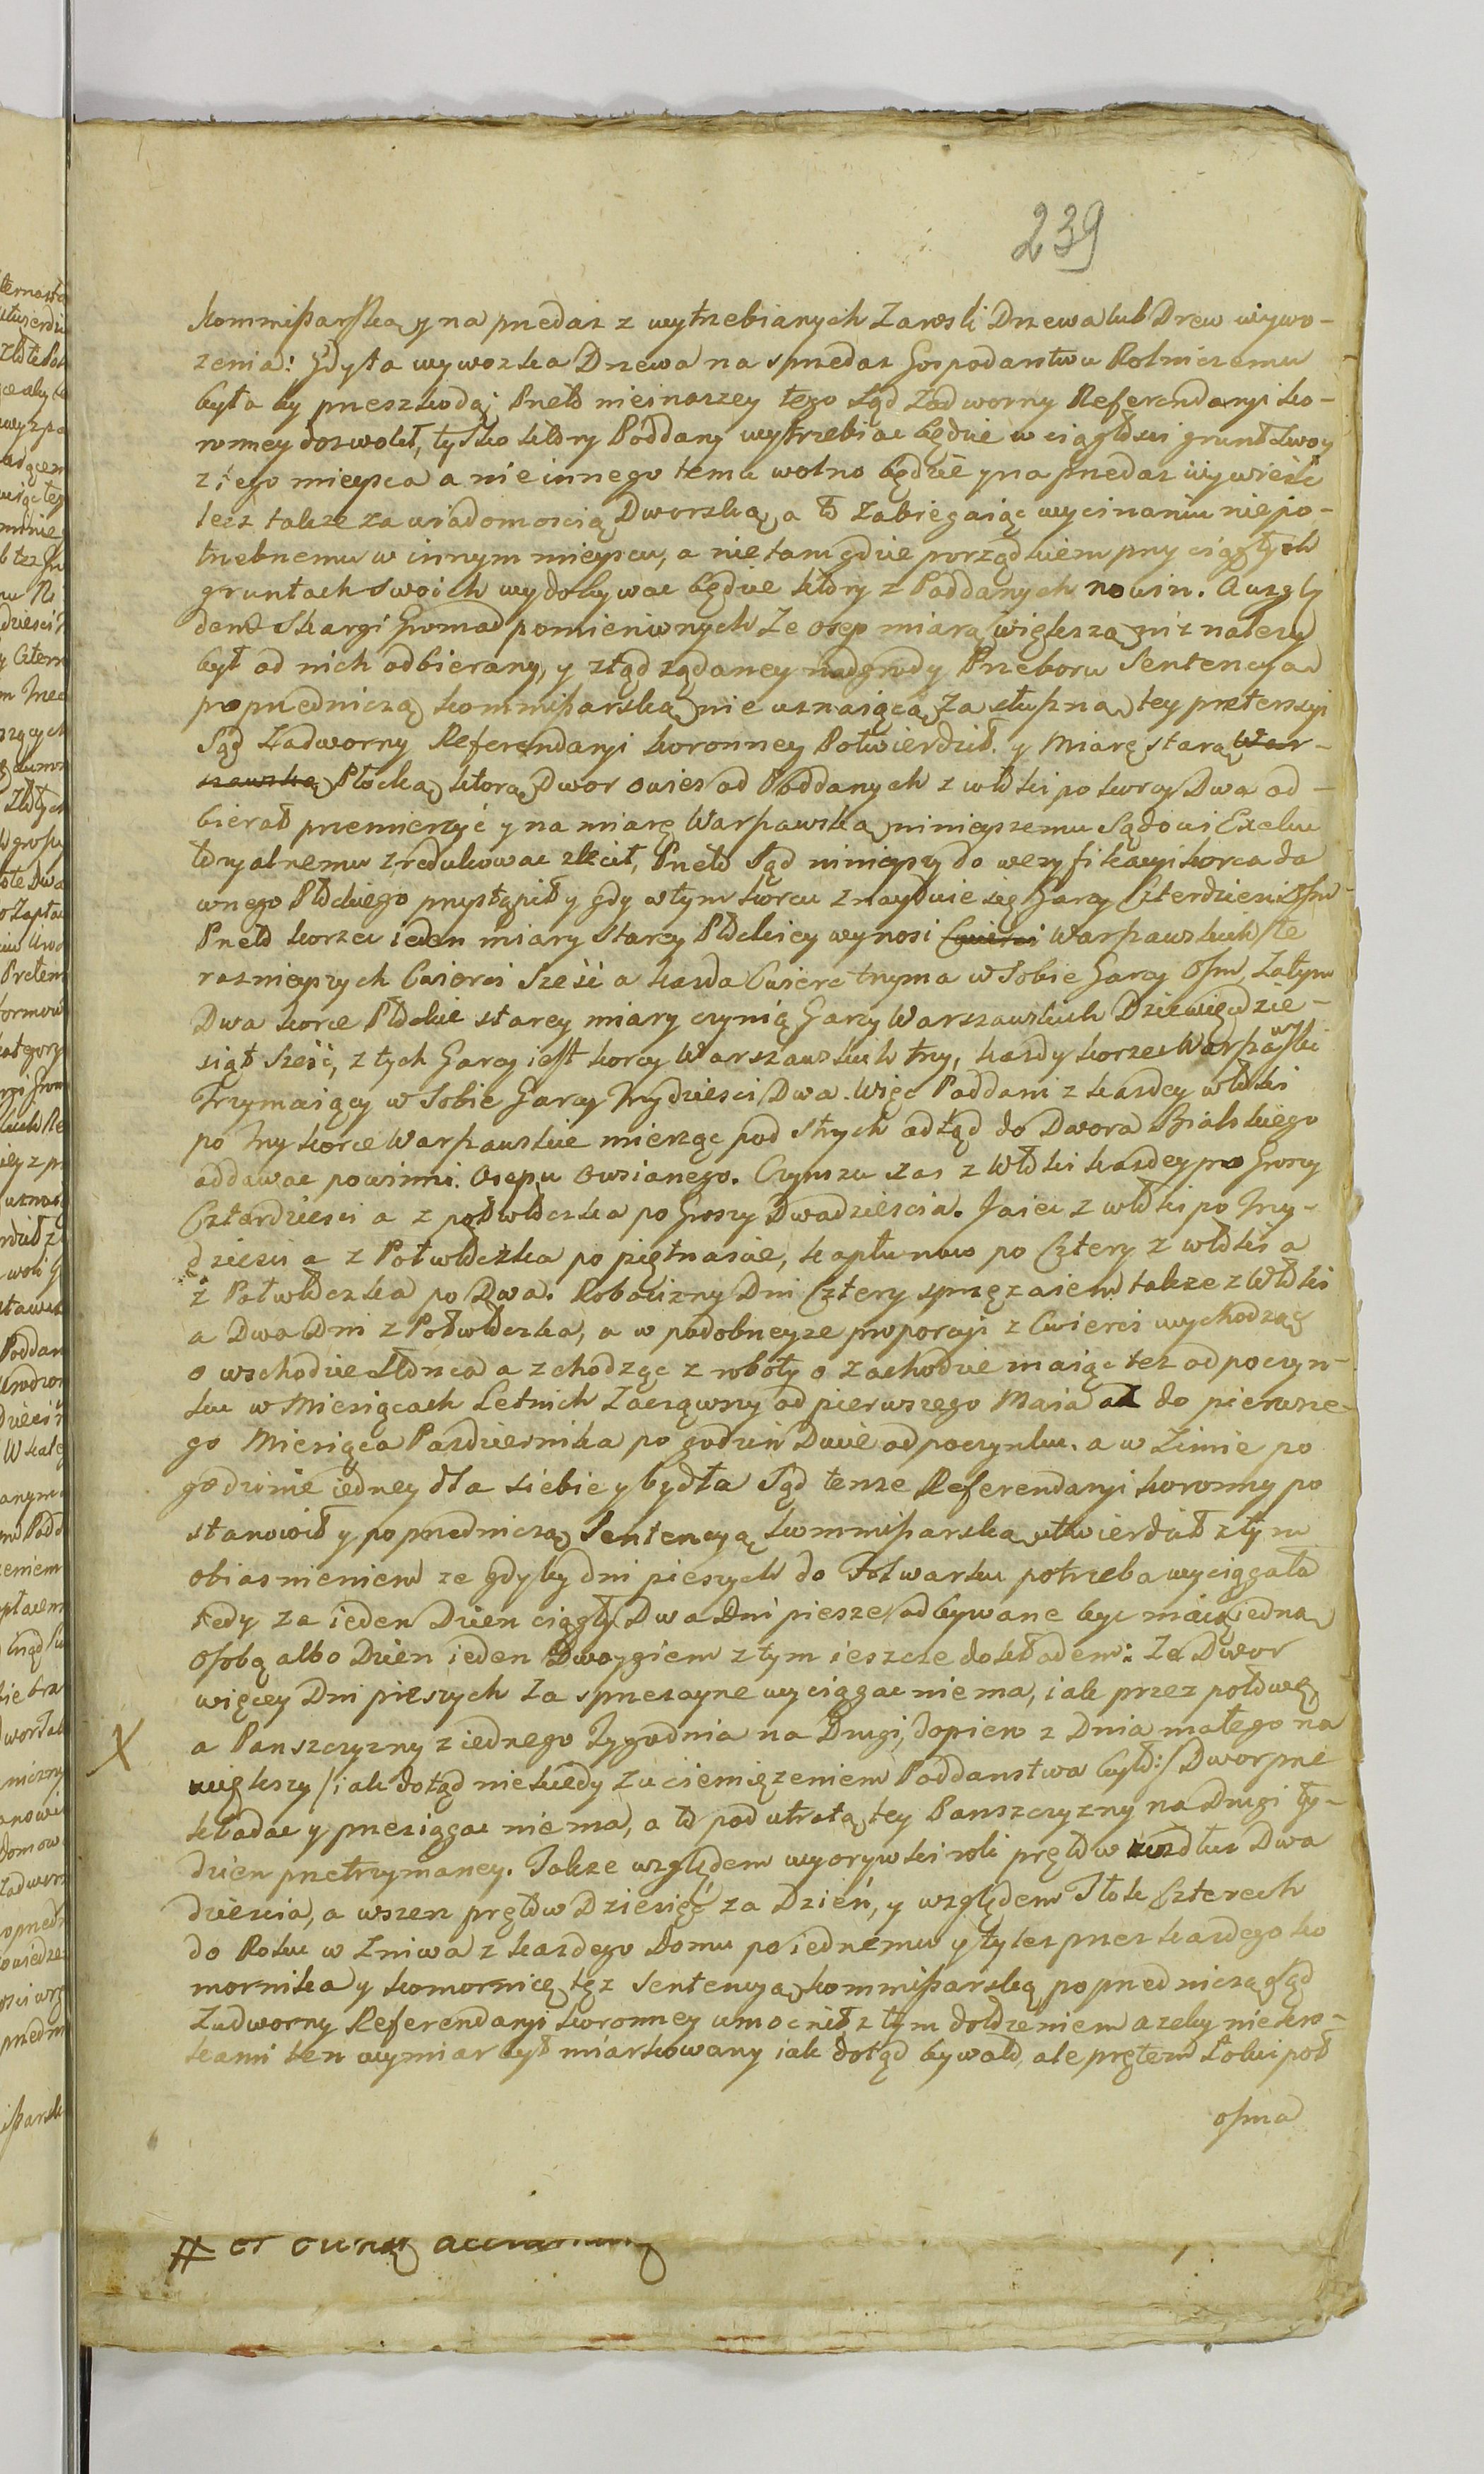 239
Kommißarską y na przedaz z wytrzebianych Zarosli Drzewa lub Drew wywo-
zenia: Gdy ta wywozka Drzewa na sprzedaz Gospodarstwu Rolniczemu
była by przeszkodą; Przeto nieinaszey tego Sąd Zadworny Referendaryi Ko-
ronney dozwolił, tylko który Poddany wytrzebiac będzie w ciągłości grunt swoy
z tego mieysca a nie innego temu wolno będzie y na przedaz wywieść
lecz takze za wiadomoscią Dworską, a to Zabiegaiąc wycinaniu niepo-
trzebnemu w innym mieyscu, a nie tam gdzie porządkiem przy ciągłych
gruntach swoich wydobywac będzie który z Poddanych nowin. A wzglę
dem Skargi Gromad pomienionych Ze osep miarą większą niz nalezy
był od nich odbierany, y ztąd ządaney nadgrody Przeboru Sentencyą
poprzedniczą Kommißarską nie uznaiącą Za słuszną tey pretensyi
Sąd Zadworny Referendaryi Koronney Potwierdził. y Miarę starą War-
szawską Płocką, ktorą Dwor owies od Poddanych z włóki po korcy Dwa od-
bierał przemierzyć y na miarę Warszawską ninieyszemu Sądowi Exeku
toryalnemu zredukowac zlecił, Przeto Sąd ninieyszy do weryfikacyi korca da
wnego Płockiego przystąpił y gdy w tym korcu znayduie się Garcy Czterdziesci Osm
Przeto korzec ieden miary Starey Płockiey wynosi Cwierci Warszawskich te
raznieyszych Cwierci Sześć a kazda Cwierc trzyma w Sobie Garcy Osm, Zatym
Dwa korce Płockie starey miary czynią Garcy Warszawskich Dziewięcdzie-
siąt Sześć, z tych Garcy iest korcy Warszawskich trzy, kazdy korzec Warszawski
Trzymaiący w Sobie Garcy Trzydziesci Dwa. Więc Poddani z kazdey włóki
po Trzy korce Warszawskie mierząc pod Strych odtąd do Dwora Bialskiego
oddawac powinni. Osepu Owsianego. Czynszu zas z Włóki kazdey po Groszy
Czterdziesci a z pół włóczka po Groszy Dwadziescia. Jaiec z włóki po Trzy-
dziesci a z Połwłóczka po piętnascie, kapłunow po Cztery z włóki a
z Połwłóczka po Dwa. Robocizny Dni Cztery sprzęzaiem takze z Włóki
a Dwa Dni z Półwłóczka, a w podobneyze proporcyi z Cwierci wychodząc
o wschodzie Słońca a zchodząc z roboty o zachodzie maiąc tez odpoczyn-
ku w Miesiącach Letnich Zacząwszy od pierwszego Maia az do pierwsze-
go Miesiąca Pazdziernika po godzin Dwie odpoczynku. a w Zimie po
godzinie iedney dla siebie y bydła Sąd tenze Referendaryi Koronny po
stanowił y poprzedniczą Sentencyą Kommißarską utwierdził z tym
obiasnieniem ze gdyby dni pieszych do Folwarku potrzeba wyciągała
tedy za ieden Dzien ciągły Dwa Dni piesze odbywane byc maią iedną
Osobą albo Dzien ieden Dwoygiem z tym ieszcze dokładem: Ze Dwor
więcey Dni pieszych za sprzezayne wyciągac niema, iak przez połowę
X
a Panszczyzny z iednego Tygodnia na Drugi, dopiero z Dnia małego na
większy /: iak dotąd niekiedy z uciemięzeniem Poddanstwa było :/ Dwor prze
kładac y przeciągac niema, a to pod utratą tey Panszczyzny na Drugi ty-
dzien przetrzymaney. Takze względem wyorywki roli prętow wzdłuz Dwa
dziescia, a wszerz prętow Dziesięć za Dzień, y względem Tłok Czterech
do Roku w Zniwa z kazdego Domu po iednemu y tylez przez kazdego ko
mornika y komornicę tęz Sentencyą Kommißarską poprzedniczą Sąd
Zadworny Referendaryi Koronney umocnił, z tym dołożeniem azeby nie kro-
kami ten wymiar był miarkowany iak dotąd bywało, ale prętem Łokci pół
osma